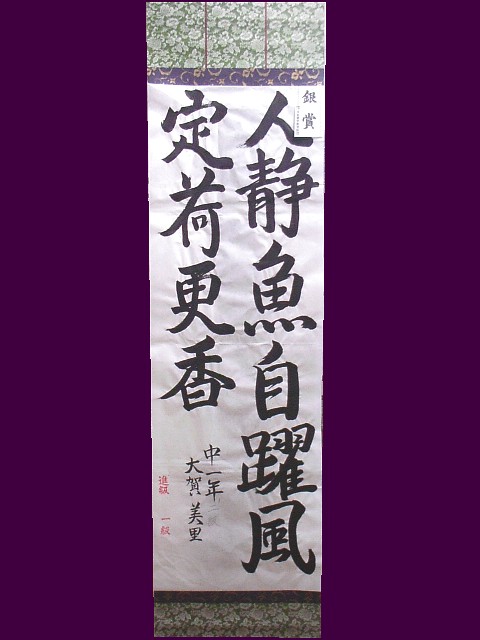 銀賞
人静魚自躍風
定荷更香
中一年
大賀美里
進級 一級